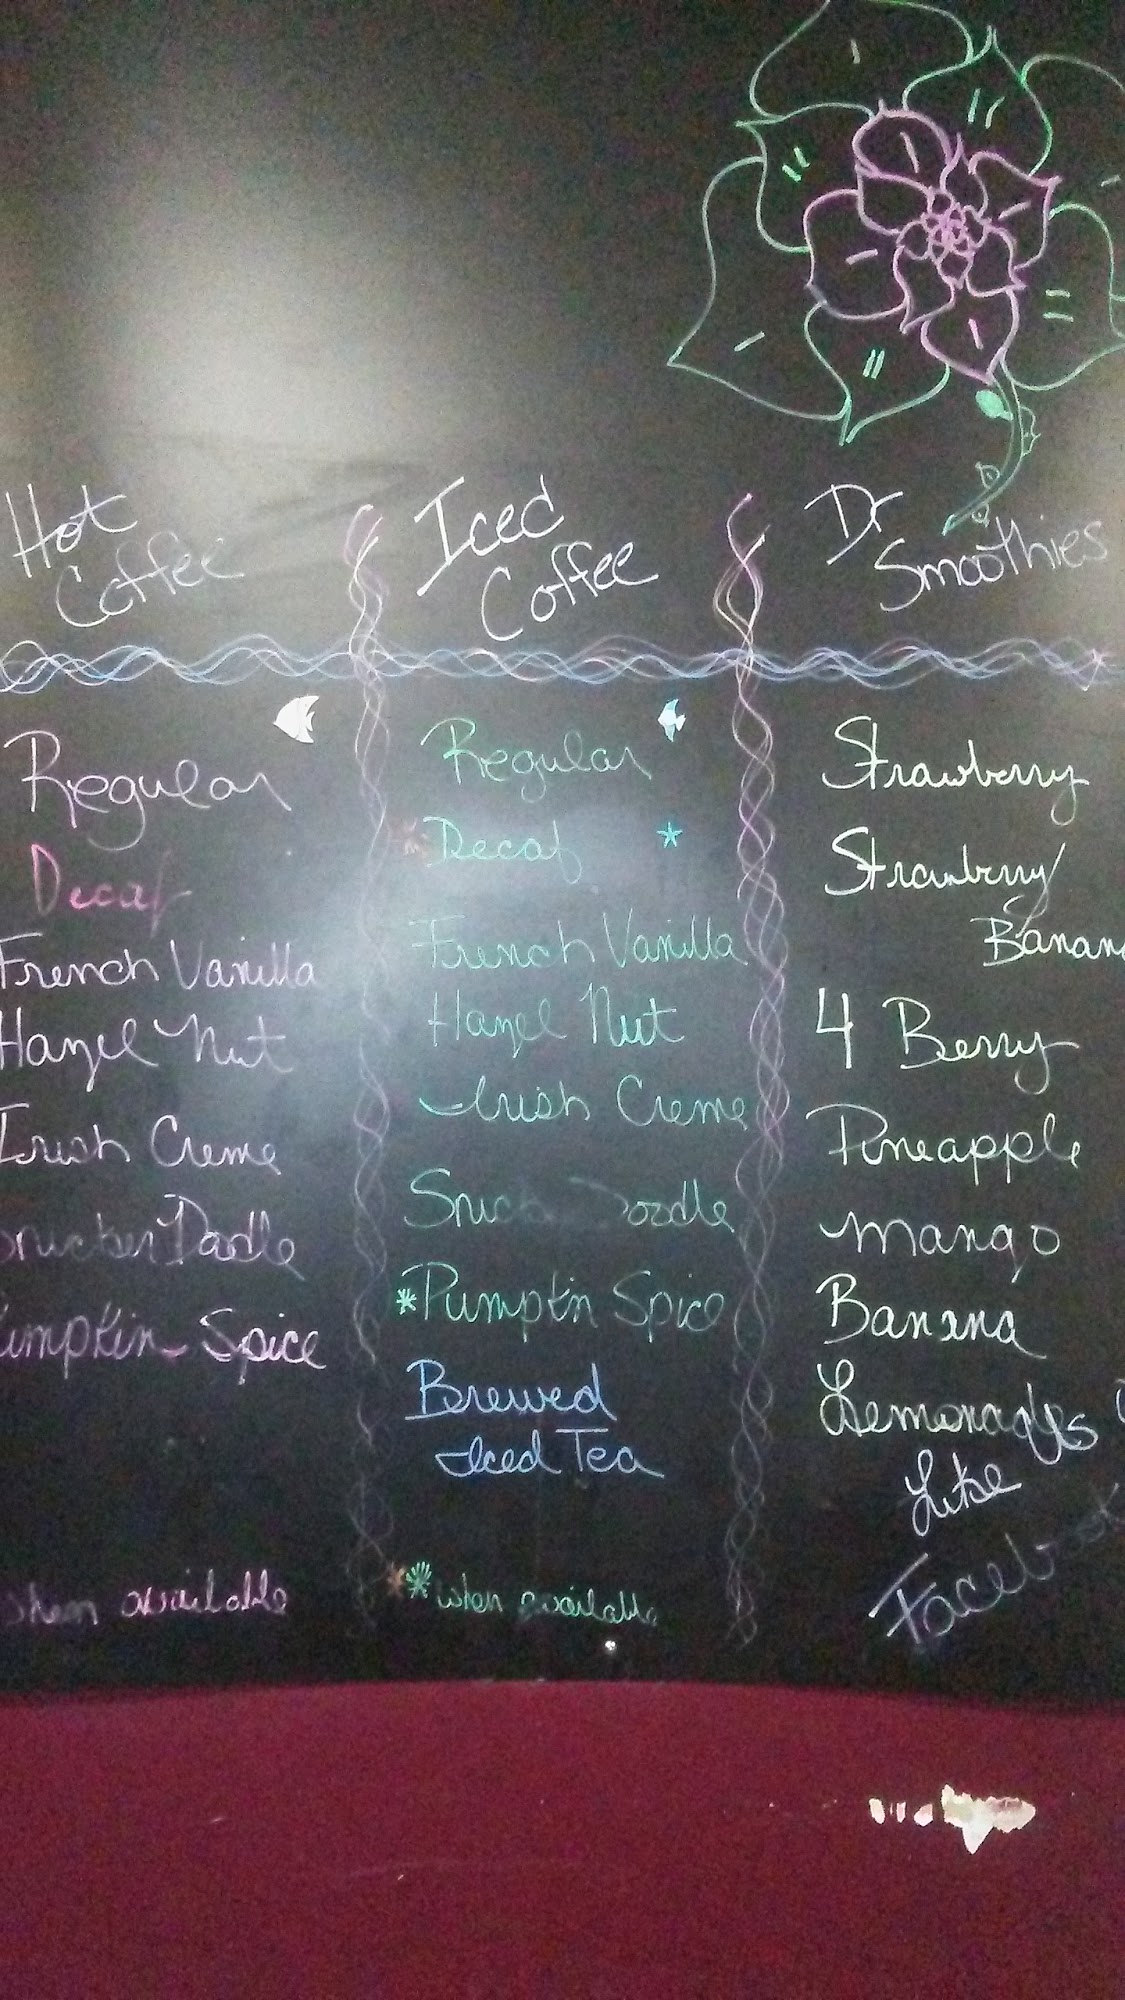 Hot
Coffee
Regular
Decaf
French Vanilla
Hazel Nut
Irish Creme
Snicker Doodle
Pumpkin Spice
when available
Iced
Coffee
Regular
* Decaf *
French Vanilla
Hazel Nut
Irish Creme
Doodle
*Pumpkin Spice
Brewed
Iced Tea
** when available
Dr
Smoothies
Strawberry
Strawberry
Banana
4 Berry
Pineapple
Mango
Banana
Lemonades
Like
Facebook